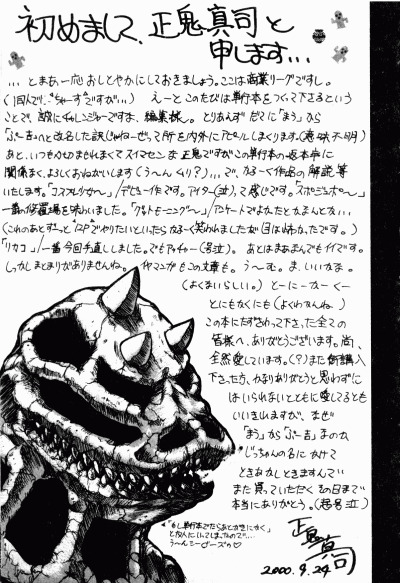 初めまして、正鬼真司と
申します...
...とまあ、一応おしとやかにしておきましょう。ここは商業リーグですし。
(同人で、ごちゃーすですが...) えーとこのたびは単行本をつくって下さるという
ことで、誠にチャレンジャーですな、編集様。とりあえず だてに「まう」から
「ぷー吉」へと改名した誤じゃねーぜって所を内外にアピールしまくります。(意味不明)
あと、いつものまとまりなくてスイマセンな 正鬼ですがこの単行本の
関係なく、よろしくおねがいします(う〜ん
いたします。 デビュー作です。アイター(泣)って感じです。「スポンジュポ〜」
一番の修羅場を味わいました。「グットモーニング〜」アンケートでよかったとかなんとか...
「リカコ」一番今回手直ししました。でもアイター(号泣)。 あとはまあまあんでもイイです。
しっかしまとまりがありませんね。 この文章も。う〜む。ま、いいかな。
(よくまいらしい。) とーにーかーくー
とにもかくにも(よくわかんね)
この本にたずさわって下さった全ての
皆様へ、ありがとうございます。尚、
全然愛しています。(?)また御購入
下さった方、かなりありがとうと思わずに
はいられないとともに愛してるとも
いいきれますが、なぜ
「まう」から「ぷー吉」なのか
じっちゃんの名にかけて
ときあかしときますんで
また買っていただくその日まで
本当にありがとう。(超号泣)
「もし単行本でたらあとがきにかく」
と友人にいってしまったので...
う〜んシーローズの♡
正鬼真司
2000.9.24